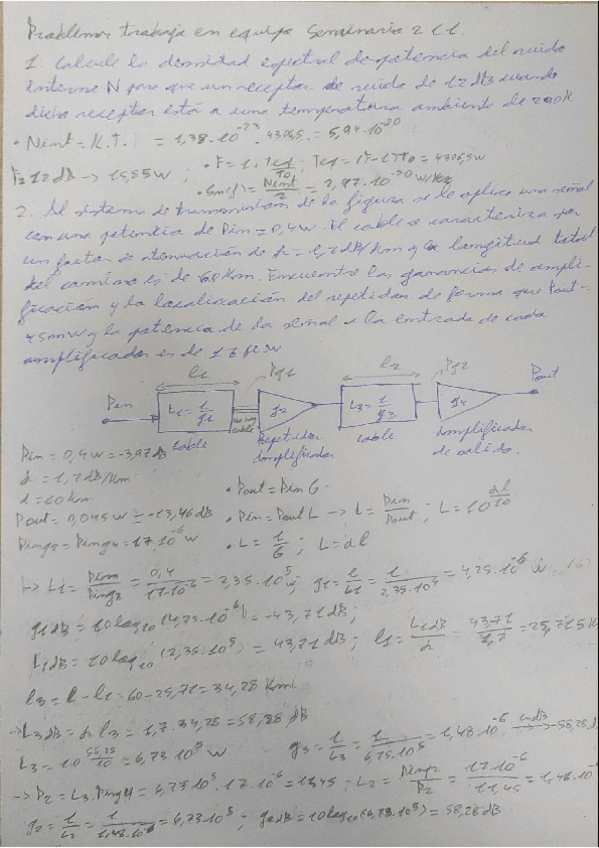 Problemas trabajo en equipo Seminario 2 C1.
1. Calcule la densidad espectral de potencia del ruido
interno N para que un receptor de ruido de 12 dB cuando
dicho receptor está a una temperatura ambiente de 290K
• Nint = K.T. = 1,38.10^-23 . 4306,5 = 5,94.10^-20
F=12dB → 15,85W ; • F = 1+Teq/To ; Teq = (F-1)To = 4306,5W
• Sm(f) = Nint/2 = 2,97.10^-20 W/Hz
2. Al sistema de transmisión de la figura se le aplica una señal
con una potencia de Pin = 0,4W. El cable se caracteriza por
un factor de atenuación de α = 1,7 dB/Km y la longitud total
del camino es de 60Km. Encuentre las ganancias de ampli-
ficación y la localización del repetidor de forma que Pout =
45mW y la potencia de la señal a la entrada de cada
amplificador es de 17 μW
l1 Pg1 l2 Pg2 Pout
Pin L1 = 1/g1 g2 L3 = 1/g3 g4
cable Repetidor amplificador cable amplificador de salida.
Pin = 0,4W = -3,97dB
α = 1,7dB/Km
l = 60Km • Pout = Pin G
Pout = 0,045W = -13,46dB • Pin = Pout L → L = Pin/Pout ; L = 10^(αl/10)
Ping2 = Ping4 = 17.10^-6 W • L = 1/G ; L = αl
→ L1 = Pin/Ping2 = 0,4/17.10^-6 = 2,35.10^5 W ; g1 = 1/L1 = 1/2,35.10^5 = 4,25.10^-6 W
g1dB = 10log10(4,25.10^-6) = -43,71dB ;
L1dB = 10log10(2,35.10^5) = 43,71dB ; l1 = L1dB/α = 43,71/1,7 = 25,715K
l3 = l - l1 = 60-25,71 = 34,28Km
→ L3dB = α l3 = 1,7.34,28 = 58,28dB
L3 = 10^(58,28/10) = 6,73.10^5 W g3 = 1/L3 = 1/6,75.10^5 = 1,48.10^-6 → en dB -58,28d
→ P2 = L3.Ping4 = 6,73.10^5 . 17.10^-6 = 11,45 ; L2 = Ping2/P2 = 17.10^-6/11,45 = 1,48.10^-6
g2 = 1/L2 = 1/1,48.10^-6 = 6,73.10^5 ; g2dB = 10log10(6,73.10^5) = 58,28dB